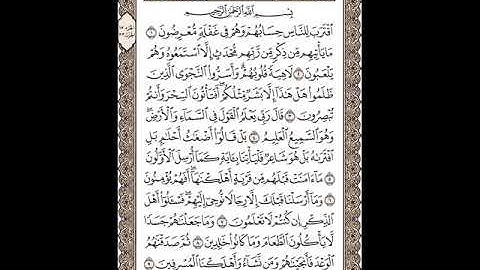 بِسْمِ ٱللَّهِ ٱلرَّحْمَٰنِ ٱلرَّحِيمِ
ٱقْتَرَبَ لِلنَّاسِ حِسَابُهُمْ وَهُمْ فِى غَفْلَةٍ مُّعْرِضُونَ ١
مَا يَأْتِيهِم مِّن ذِكْرٍ مِّن رَّبِّهِم مُّحْدَثٍ إِلَّا ٱسْتَمَعُوهُ وَهُمْ
يَلْعَبُونَ ٢ لَاهِيَةً قُلُوبُهُمْ ۗ وَأَسَرُّوا۟ ٱلنَّجْوَى ٱلَّذِينَ
ظَلَمُوا۟ هَلْ هَٰذَآ إِلَّا بَشَرٌ مِّثْلُكُمْ ۖ أَفَتَأْتُونَ ٱلسِّحْرَ وَأَنتُمْ
تُبْصِرُونَ ٣ قَالَ رَبِّى يَعْلَمُ ٱلْقَوْلَ فِى ٱلسَّمَآءِ وَٱلْأَرْضِ ۖ
وَهُوَ ٱلسَّمِيعُ ٱلْعَلِيمُ ٤ بَلْ قَالُوٓا۟ أَضْغَٰثُ أَحْلَٰمٍۭ بَلِ
ٱفْتَرَىٰهُ بَلْ هُوَ شَاعِرٌ فَلْيَأْتِنَا بِـَٔايَةٍ كَمَآ أُرْسِلَ ٱلْأَوَّلُونَ
٥ مَآ ءَامَنَتْ قَبْلَهُم مِّن قَرْيَةٍ أَهْلَكْنَٰهَآ ۖ أَفَهُمْ يُؤْمِنُونَ
٦ وَمَآ أَرْسَلْنَا قَبْلَكَ إِلَّا رِجَالًا نُّوحِىٓ إِلَيْهِمْ ۖ فَسْـَٔلُوٓا۟ أَهْلَ
ٱلذِّكْرِ إِن كُنتُمْ لَا تَعْلَمُونَ ٧ وَمَا جَعَلْنَٰهُمْ جَسَدًا
لَّا يَأْكُلُونَ ٱلطَّعَامَ وَمَا كَانُوا۟ خَٰلِدِينَ ٨ ثُمَّ صَدَقْنَٰهُمُ
ٱلْوَعْدَ فَأَنجَيْنَٰهُمْ وَمَن نَّشَآءُ وَأَهْلَكْنَا ٱلْمُسْرِفِينَ ٩